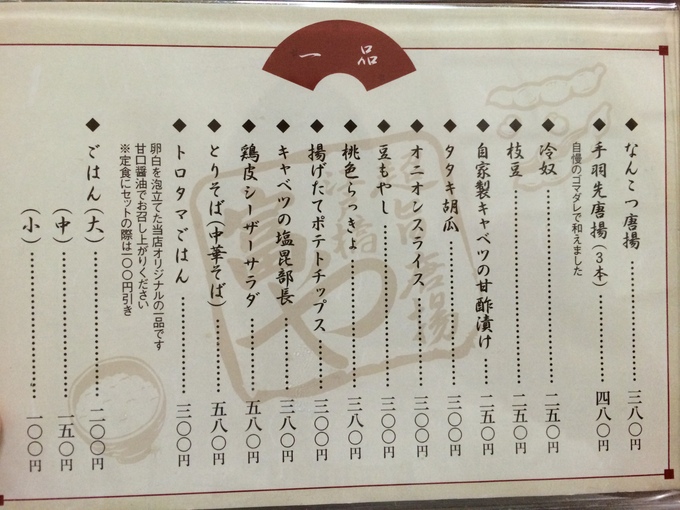 一品
◆なんこつ唐揚……………三八〇円
◆手羽先唐揚(3本)……………四八〇円
自慢のゴマダレで和えました
◆冷奴……………二五〇円
◆枝豆……………二五〇円
◆自家製キャベツの甘酢漬け……………二五〇円
◆タタキ胡瓜……………三〇〇円
◆オニオンスライス……………三〇〇円
◆豆もやし……………三〇〇円
◆桃色らっきょ……………三八〇円
◆揚げたてポテトチップス……………三〇〇円
◆キャベツの塩昆部長……………三八〇円
◆鶏皮シーザーサラダ……………五八〇円
◆とりそば(中華そば)……………五八〇円
◆トロタマごはん……………三〇〇円
卵白を泡立てた当店オリジナルの一品です
甘口醤油でお召し上がりください
※定食にセットの際は一〇〇円引き
◆ごはん(大)……………二〇〇円
(中)……………一五〇円
(小)……………一〇〇円